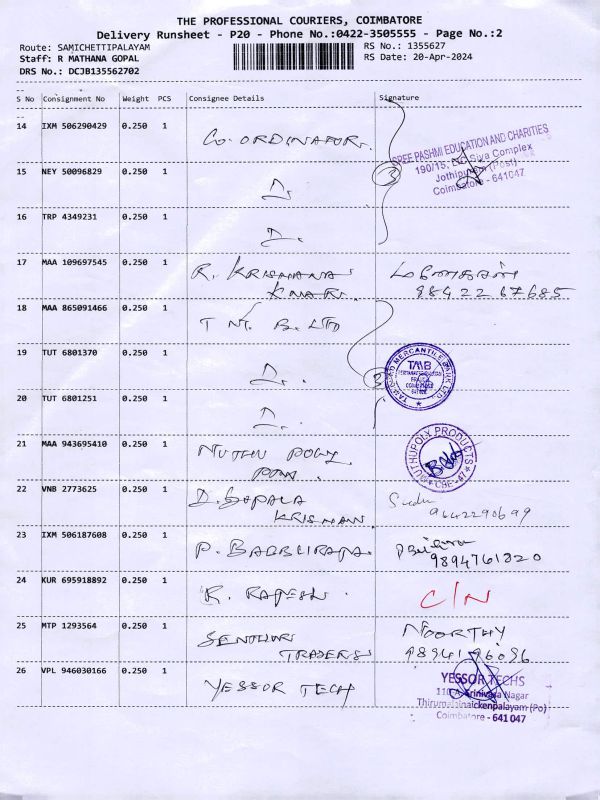 THE PROFESSIONAL COURIERS, COIMBATORE
Delivery Runsheet - P20 - Phone No.:0422-3505555 - Page No.:2
Route: SAMICHETTIPALAYAM RS No.: 1355627
Staff: R MATHANA GOPAL RS Date: 20-Apr-2024
DRS No.: DCJB135562702
S No Consignment No Weight PCS Consignee Details Signature
14 IXM 506290429 0.250 1 CO-ORDINATOR.
SREE PASHMI EDUCATION AND CHARITIES
190/15, Siva Complex
Jothipuram (Post)
Coimbatore - 641047
15 NEY 50096829 0.250 1 D. 3
16 TRP 4349231 0.250 1 D.
17 MAA 109697545 0.250 1 R. KRISHANA
KMAR. 98422 67685
18 MAA 865091466 0.250 1 TNT. B. LTD
19 TUT 6801370 0.250 1 D. 3
MERCANTILE BANK LTD.
TMB
20 TUT 6801251 0.250 1 D.
21 MAA 943695410 0.250 1 MUTHU POLY
MUTHUPOLY PRODUCTS
CBE-47
22 VNB 2773625 0.250 1 D. GOPALA
KRISHNAN 9642290699
23 IXM 506187608 0.250 1 P.
9894761320
24 KUR 695918892 0.250 1 R. RAJESH. C/N
25 MTP 1293564 0.250 1 SENTHUR MOORTHY
TRADERS 9894196096
26 VPL 946030166 0.250 1 YESSOR TECH
YESSOR TECHS
110-A Srinivasa Nagar
Thirumalainaickenpalayam (Po)
Coimbatore - 641 047